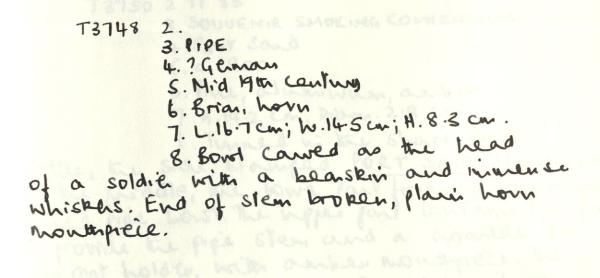 T3748 2.
3. PIPE
4. ? German
5. Mid 19th century
6. Briar, horn
7. L.16.7cm; W.14.5cm; H.8.3cm.
8. Bowl carved as the head
of a soldier with a bearskin and immense
whiskers. End of stem broken, plain horn
mouthpiece.